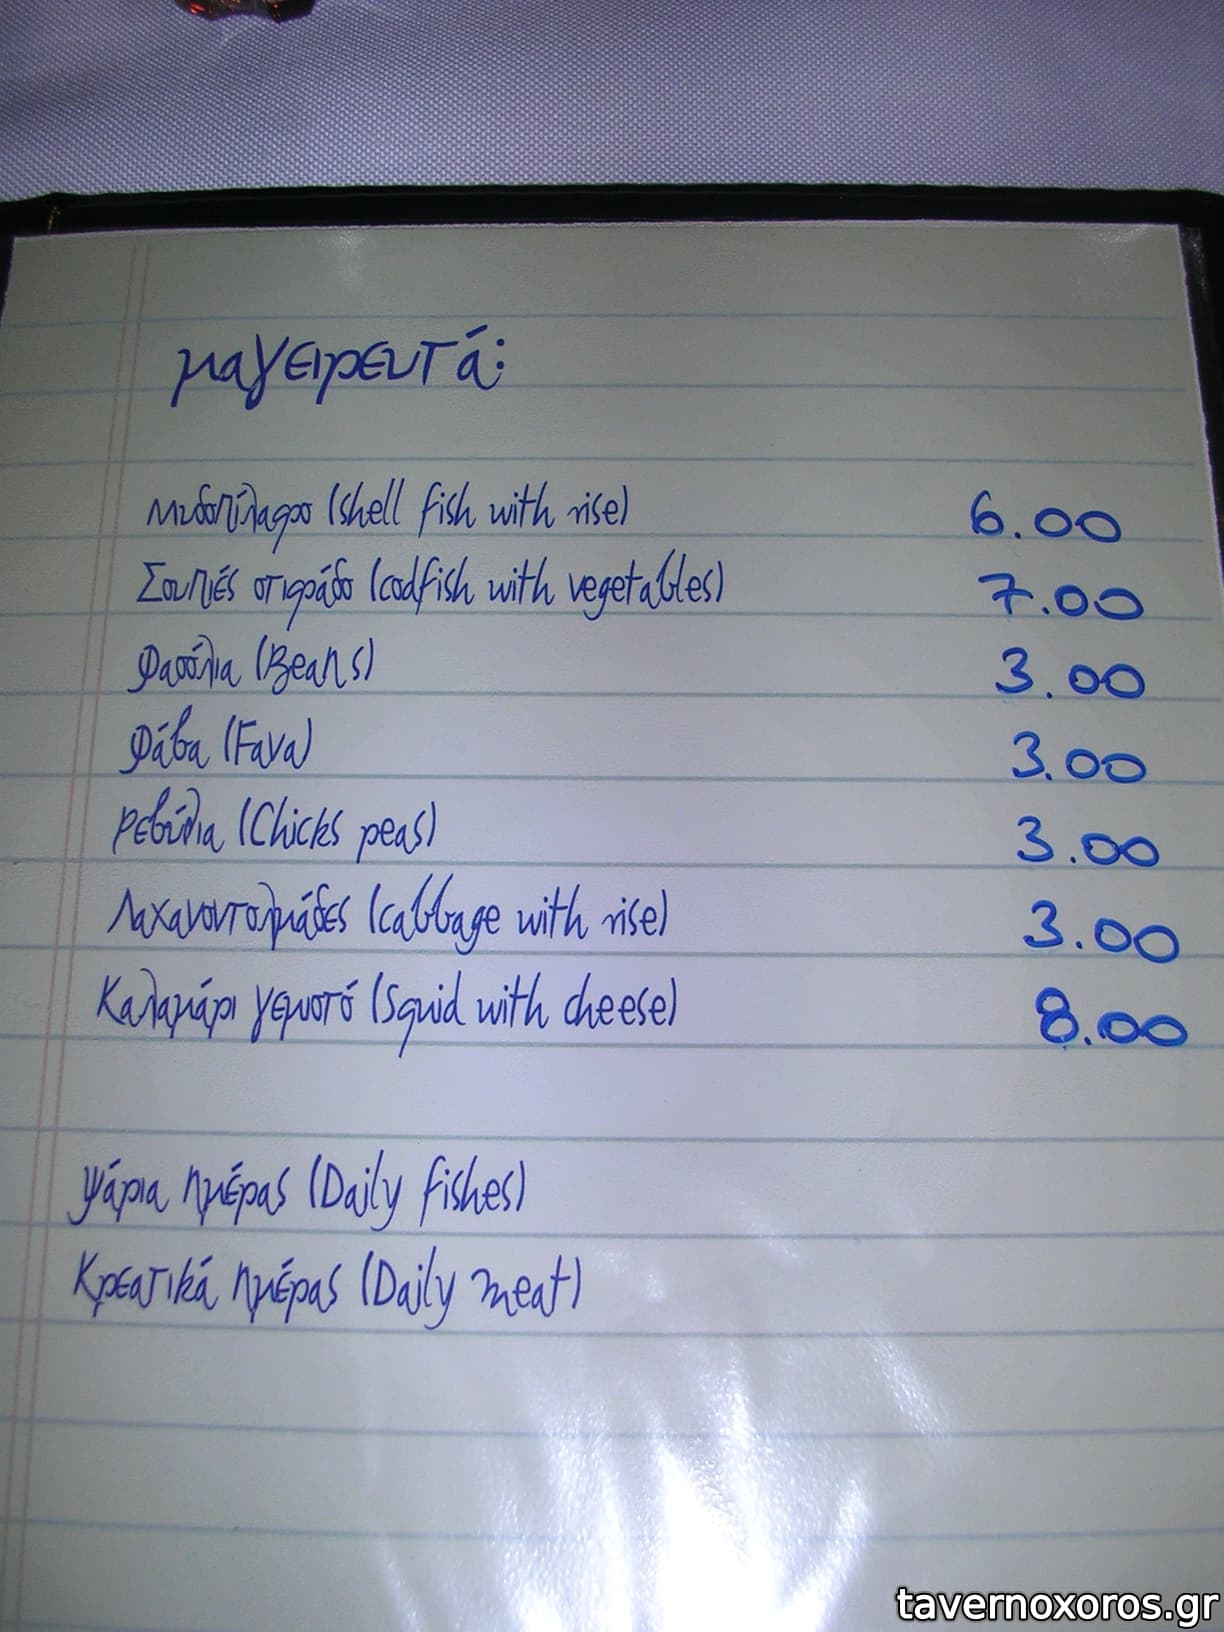 μαγειρευτά:
Μυδοπίλαφο (shell fish with rise) 6.00
Σουπιές στιφάδο (codfish with vegetables) 7.00
Φασόλια (Beans) 3.00
Φάβα (Fava) 3.00
Ρεβύθια (Chicks peas) 3.00
Λαχανοντολμάδες (cabbage with rise) 3.00
Καλαμάρι γεμιστό (Squid with cheese) 8.00
Ψάρια ημέρας (Daily fishes)
Κρεατικά ημέρας (Daily meat)
tavernoxoros.gr